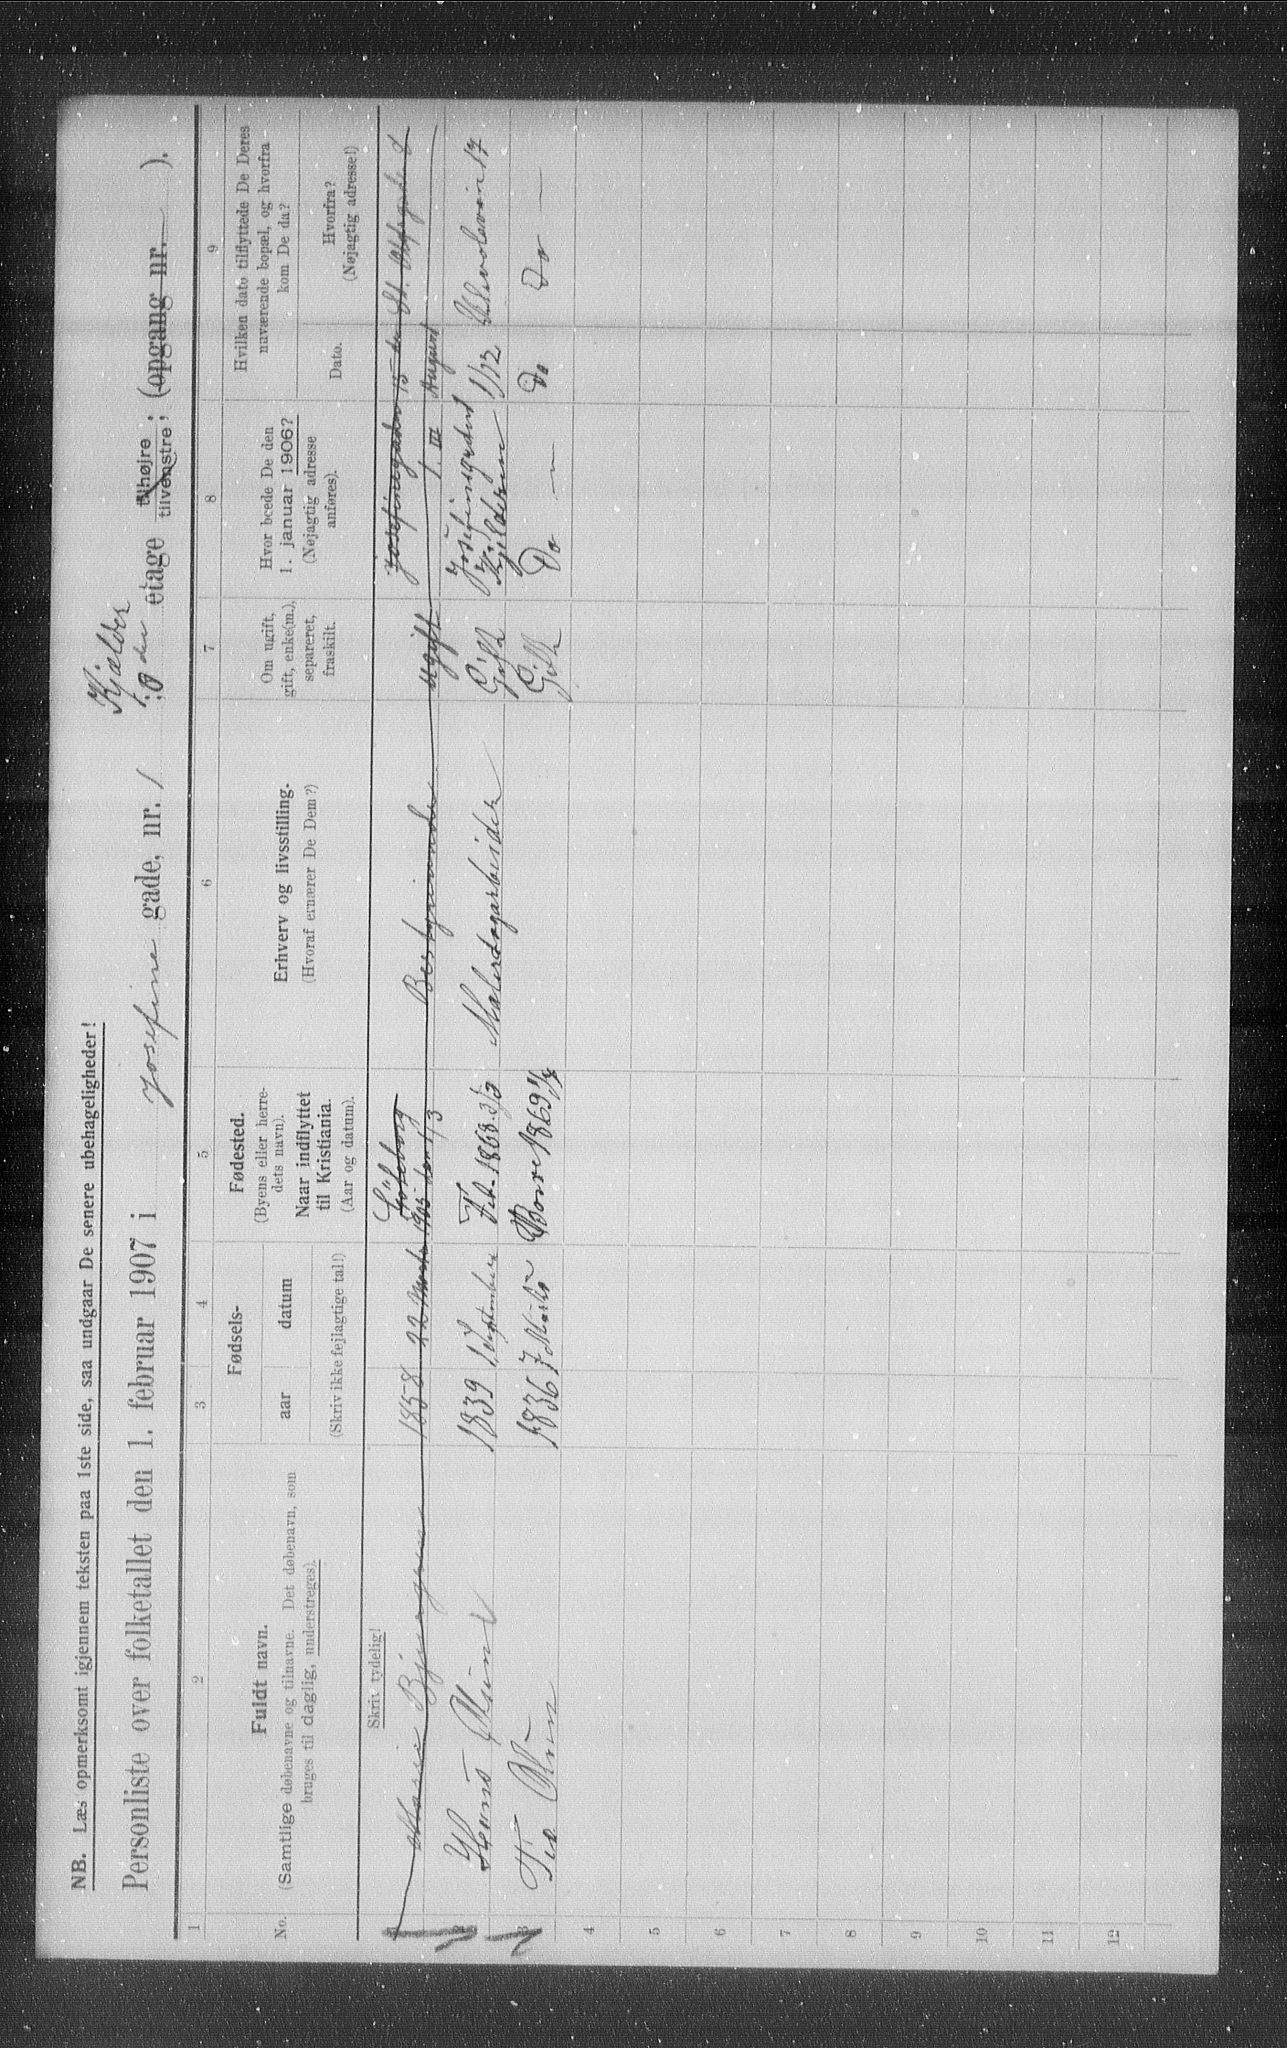 NB. Læs opmerksomt igjennem teksten paa 1ste side, saa undgaar De senere ubehageligheder!
Personliste over folketallet den 1. februar 1907 i Josefine gade, nr. 1 Kjælder etage tilhøjre tilvenstre; (opgang nr. ).
1 2 3 4 5 6 7 8 9
No.
Fuldt navn.
(Samtlige døbenavne og tilnavne. Det døbenavn, som
bruges til daglig, understreges).
Fødsels-
aar datum
(Skriv ikke fejlagtige tal!)
Fødested.
(Byens eller herre-
dets navn).
Naar indflyttet
til Kristiania.
(Aar og datum).
Erhverv og livsstilling.
(Hvoraf ernærer De Dem?)
Om ugift,
gift, enke(m.),
separeret,
fraskilt.
Hvor boede De den
1. januar 1906?
(Nøjagtig adresse
anføres).
Hvilken dato tilflyttede De Deres
nuværende bopæl, og hvorfra
kom De da?
Dato.
Hvorfra?
(Nøjagtig adresse!)
Skriv tydelig!
1 Marie 1858 22 Marts Göteborg 1905 Bestyrinde ugift Josefinegaden 1. III 15 de August St. Olafsgade
2 Hans Olsen 1839 1 September 1868 Gift Josefinegaden 1 Kjelderen 1/12 17
3 Olsen 1836 7 Marts Borre 1869 Gift Do — Do Do —
4
5
6
7
8
9
10
11
12